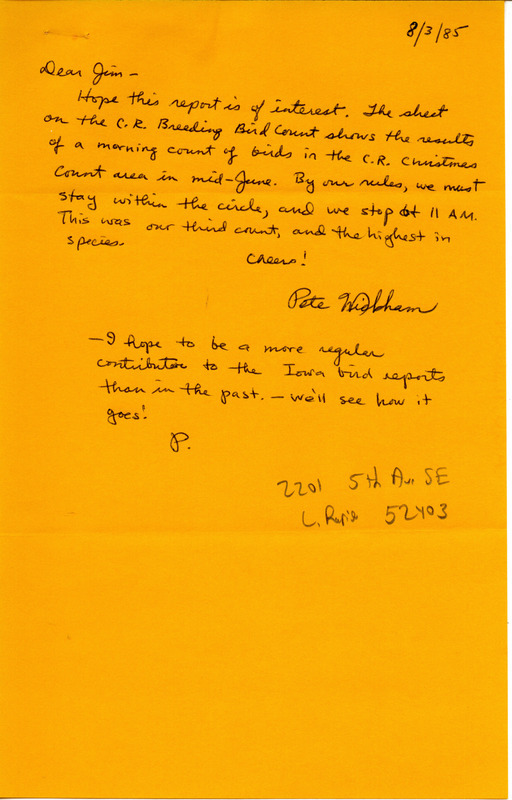 8/3/85
Dear Jim -
Hope this report is of interest. The sheet
on the C.R. Breeding Bird Count shows the results
of a morning count of birds in the C.R. Christmas
Count area in mid-June. By our rules, we must
stay within the circle, and we stop at 11 AM.
This was our third count, and the highest in
species.
Cheers!
Pete
- I hope to be a more regular
contributor to the Iowa bird reports
than in the past. - we'll see how it
goes!
P.
2201 5th Ave SE
C. Rapids 52403